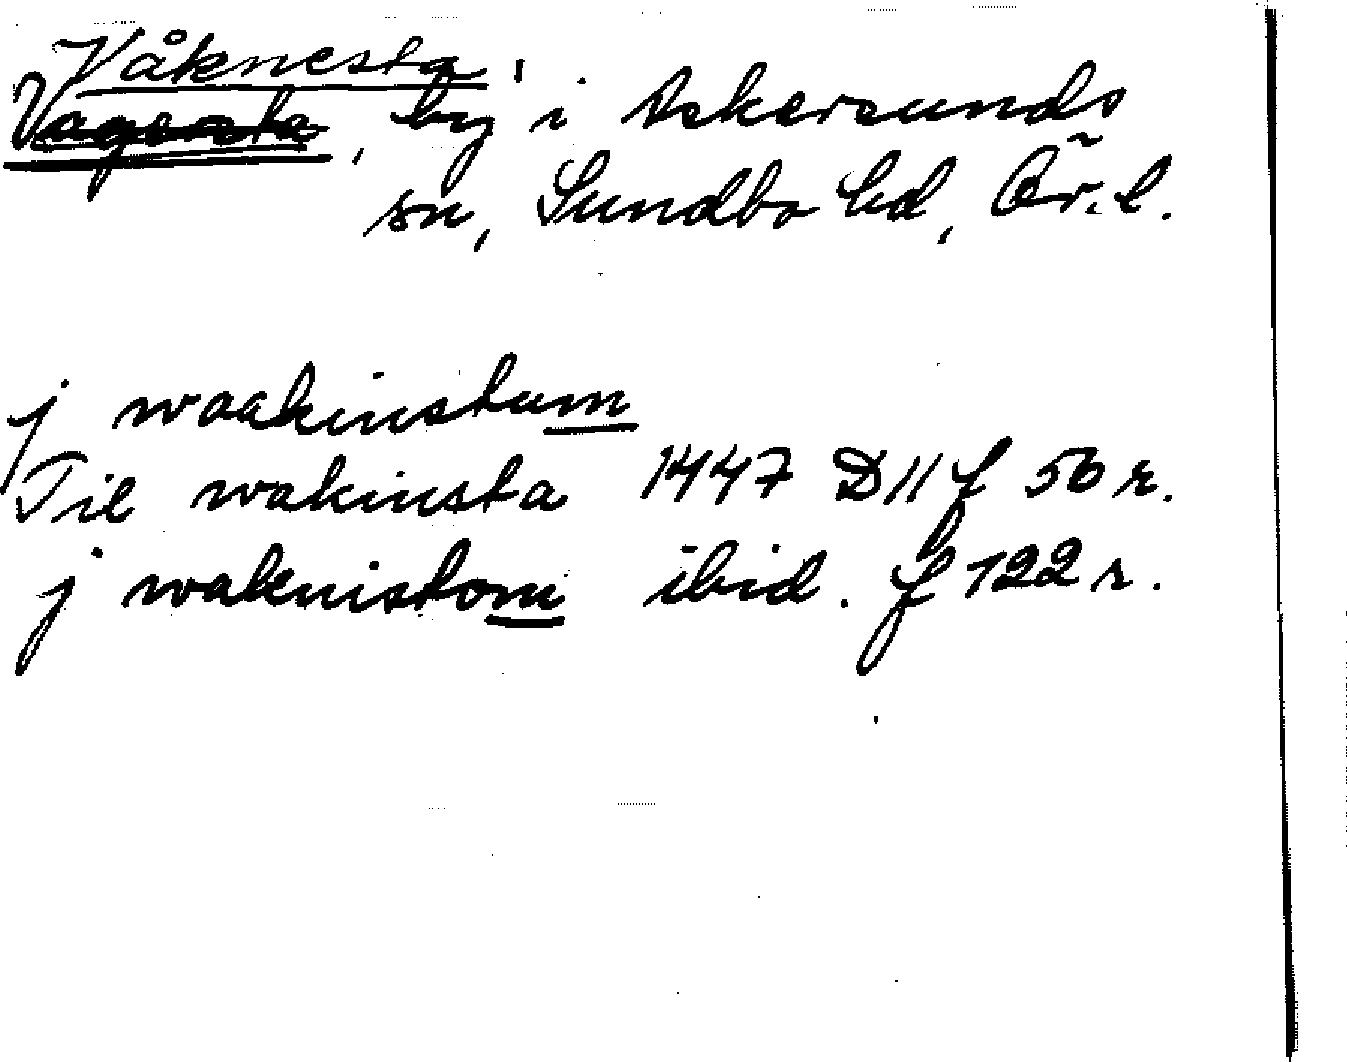 Våknesta,
Vagersta, by i Askersunds
sn, Sundbo hd, Ör. l.
j waakinstum
Til wakinsta 1447 D 11 f 56 r.
j waknistom ibid. f 122 r.